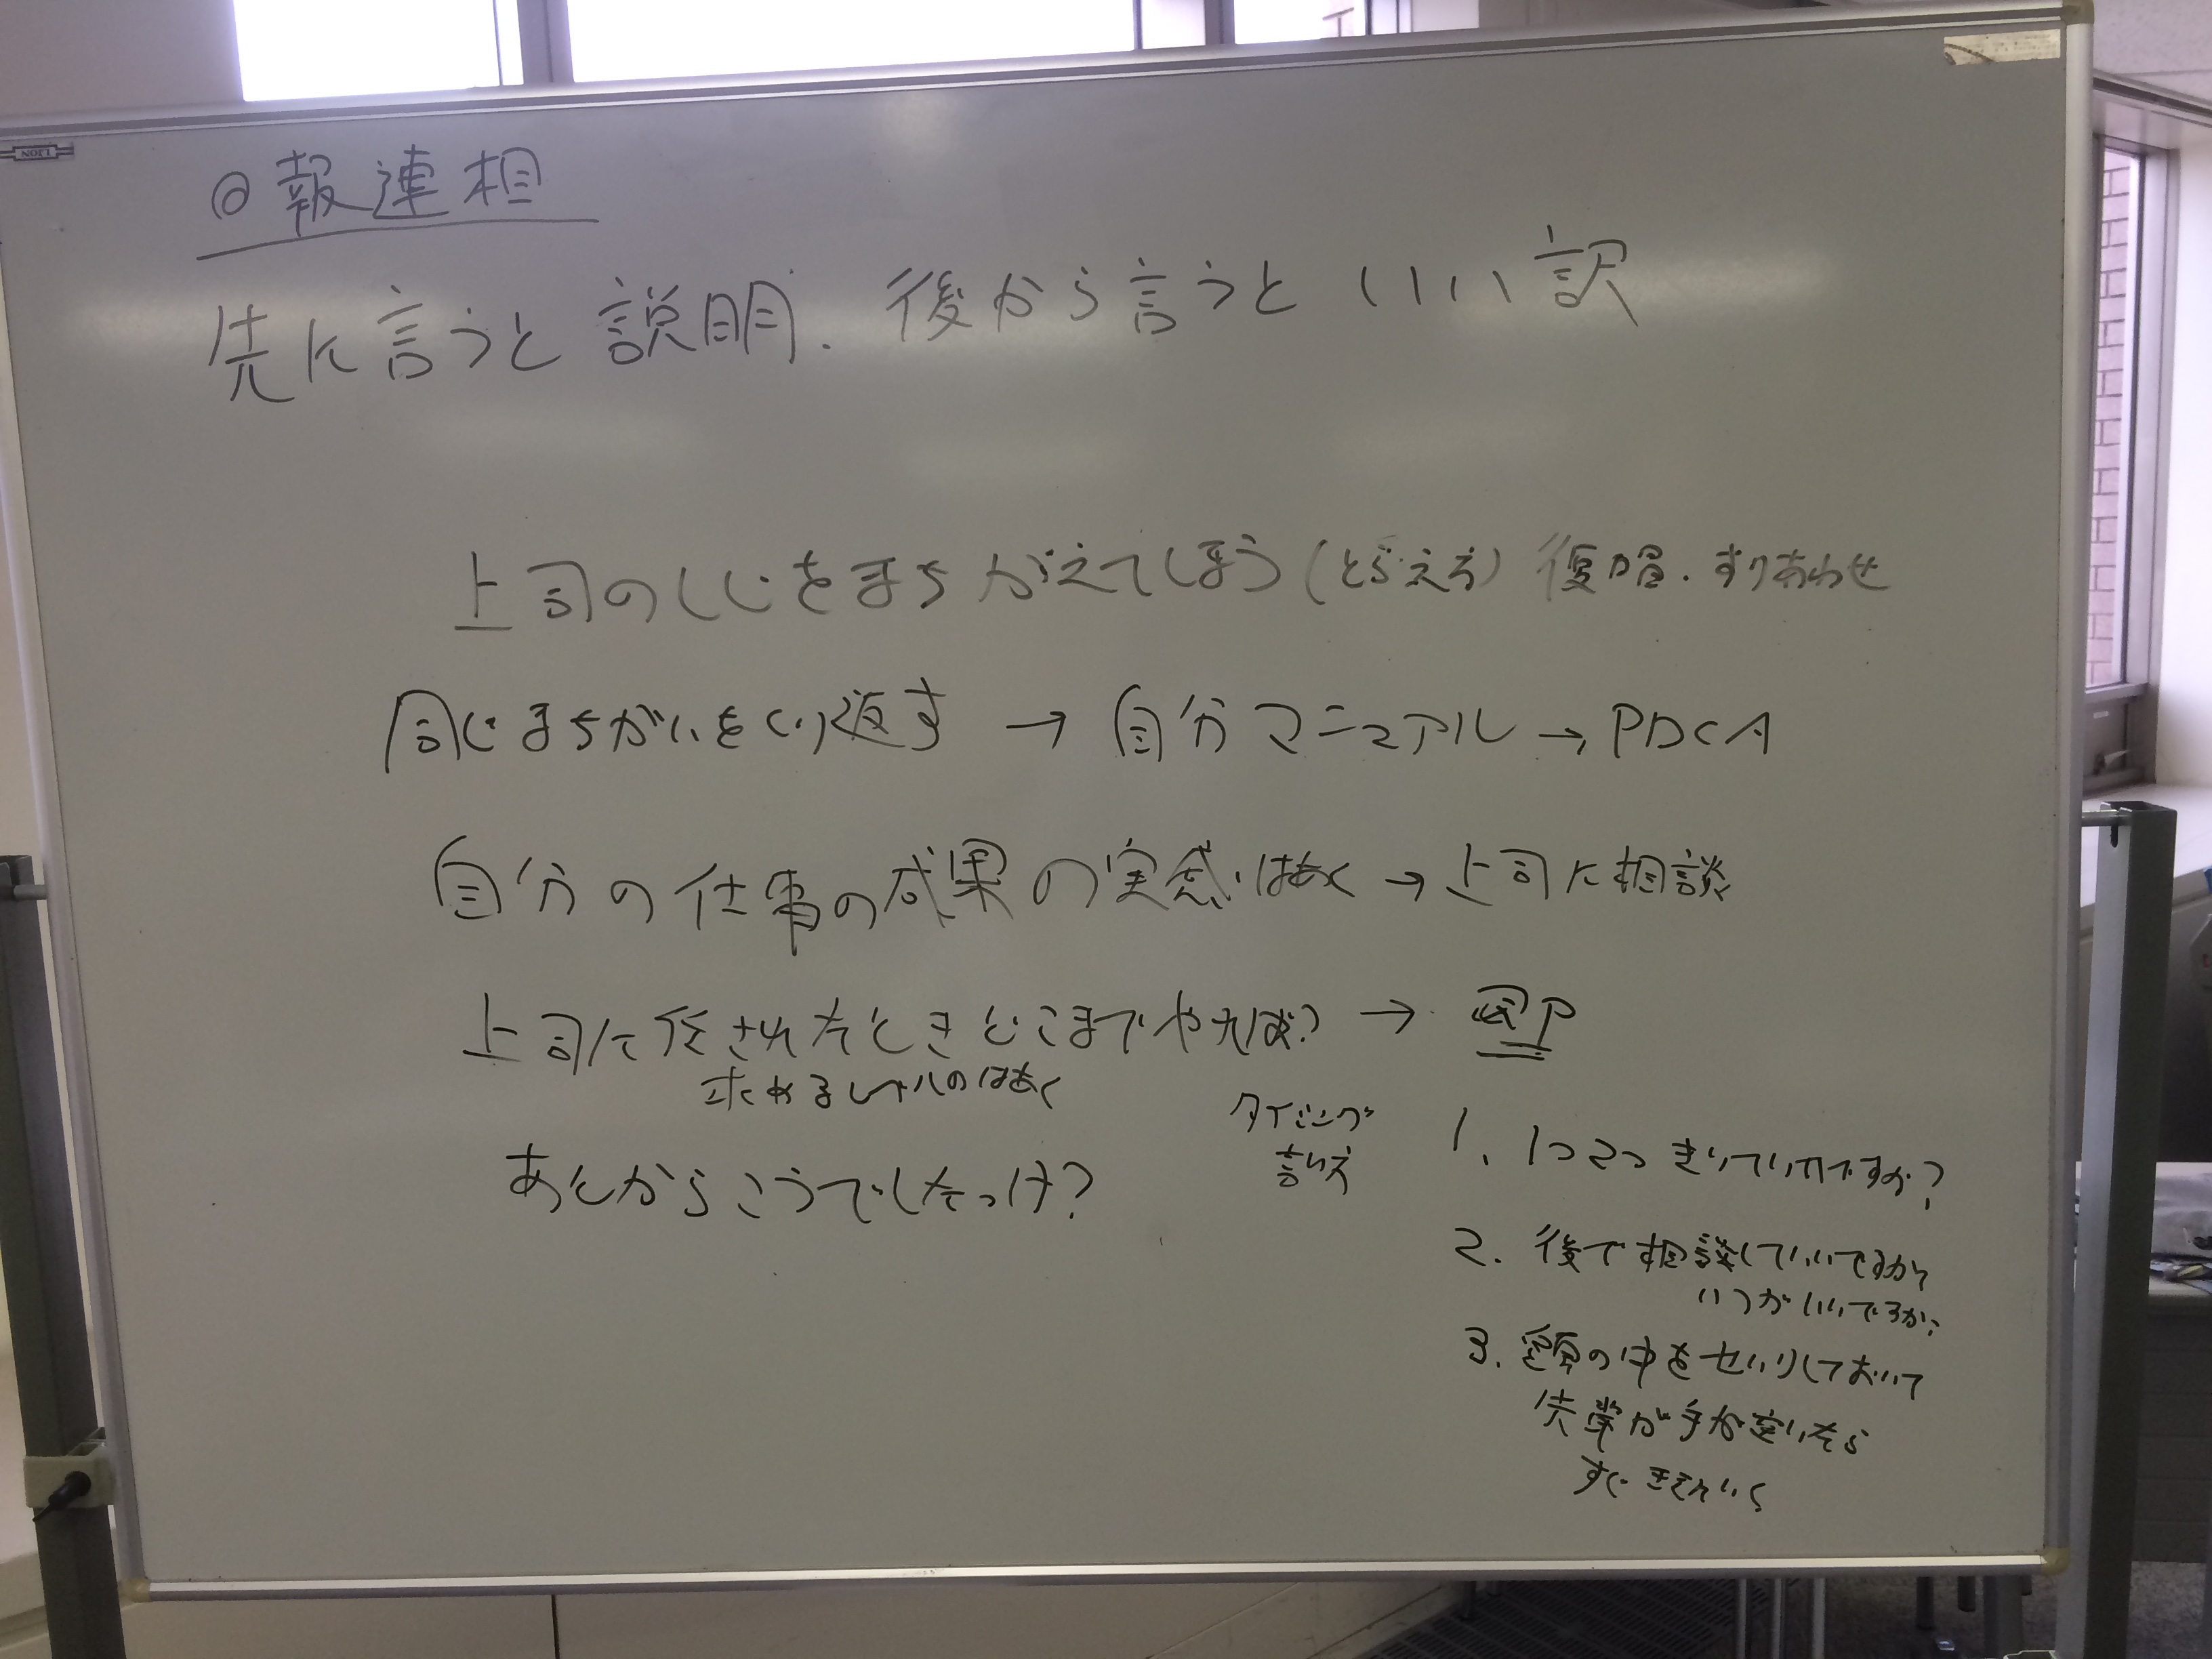 LION
◎報連相
先に言うと説明. 後から言うといい訳
上司のしじをまちがえてしまう(とらえ方) 復唱.すりあわせ
同じまちがいをくり返す → 自分マニュアル → PDCA
自分の仕事の成果の実感.はあく → 上司に相談
上司に任されたときどこまでやれば? →
求めるレベルのはあく
タイミング
言い方
あとからこうでしたっけ?
1. 1つ2つ きいていいですか?
2. 後で相談していいですか
いつがいいですか?
3. 頭の中をせいりしておいて
先輩が手が空いたら
すぐ